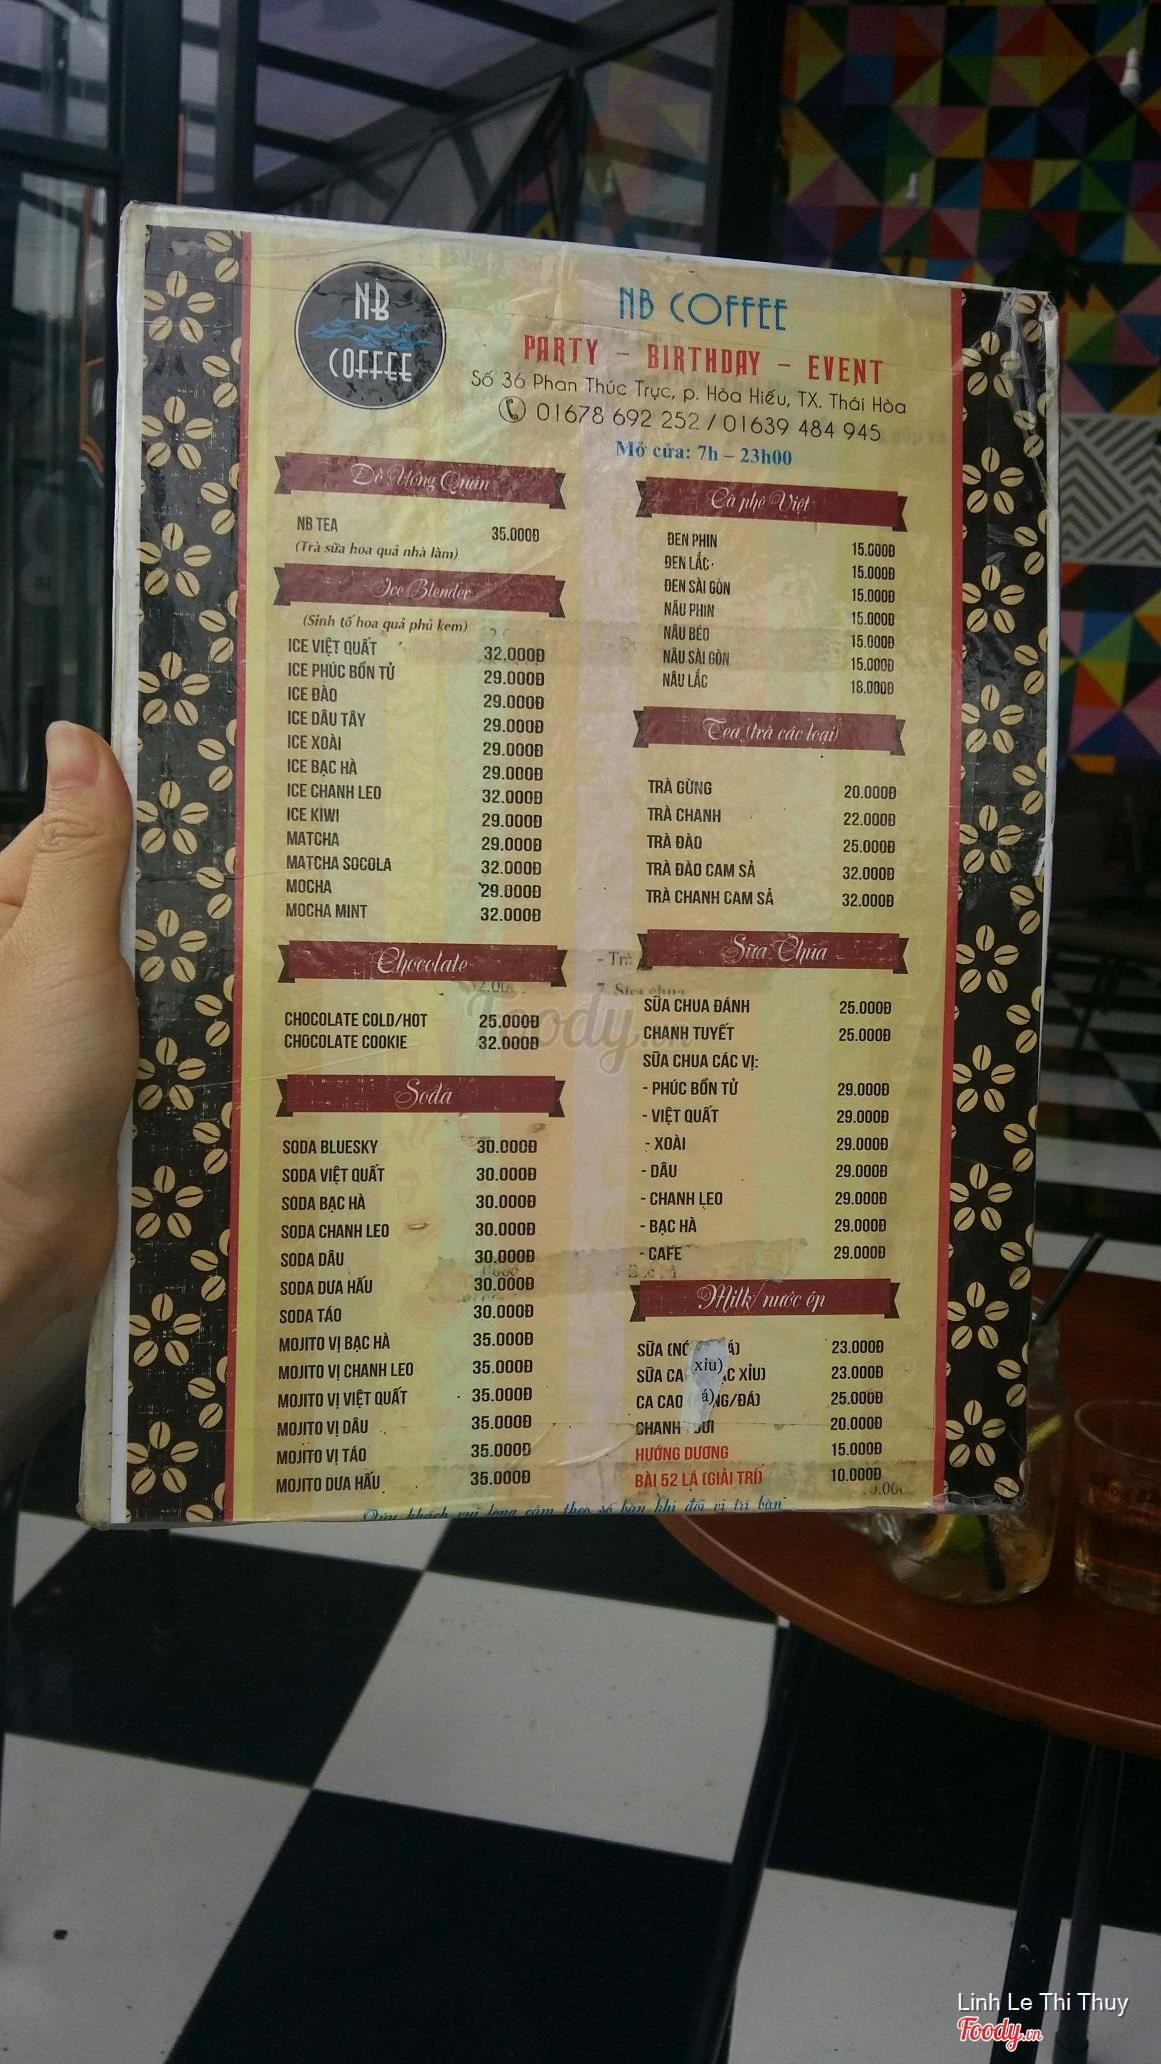 NB
COFFEE
NB COFFEE
PARTY - BIRTHDAY - EVENT
Số 36 Phan Thúc Trực, p. Hòa Hiếu, TX. Thái Hòa
01678 692 252 / 01639 484 945
Mở cửa: 7h – 23h00
Đồ Uống Quán
NB TEA 35.000Đ
(Trà sữa hoa quả nhà làm)
Ice Blender
(Sinh tố hoa quả phủ kem)
ICE VIỆT QUẤT 32.000Đ
ICE PHÚC BỒN TỬ 29.000Đ
ICE ĐÀO 29.000Đ
ICE DÂU TÂY 29.000Đ
ICE XOÀI 29.000Đ
ICE BẠC HÀ 29.000Đ
ICE CHANH LEO 32.000Đ
ICE KIWI 29.000Đ
MATCHA 29.000Đ
MATCHA SOCOLA 32.000Đ
MOCHA 29.000Đ
MOCHA MINT 32.000Đ
Chocolate
CHOCOLATE COLD/HOT 25.000Đ
CHOCOLATE COOKIE 32.000Đ
Soda
SODA BLUESKY 30.000Đ
SODA VIỆT QUẤT 30.000Đ
SODA BẠC HÀ 30.000Đ
SODA CHANH LEO 30.000Đ
SODA DÂU 30.000Đ
SODA DƯA HẤU 30.000Đ
SODA TÁO 30.000Đ
MOJITO VỊ BẠC HÀ 35.000Đ
MOJITO VỊ CHANH LEO 35.000Đ
MOJITO VỊ VIỆT QUẤT 35.000Đ
MOJITO VỊ DÂU 35.000Đ
MOJITO VỊ TÁO 35.000Đ
MOJITO DƯA HẤU 35.000Đ
Cà phê Việt
ĐEN PHIN 15.000Đ
ĐEN LẮC 15.000Đ
ĐEN SÀI GÒN 15.000Đ
NÂU PHIN 15.000Đ
NÂU BÉO 15.000Đ
NÂU SÀI GÒN 15.000Đ
NÂU LẮC 18.000Đ
Tea (trà các loại)
TRÀ GỪNG 20.000Đ
TRÀ CHANH 22.000Đ
TRÀ ĐÀO 25.000Đ
TRÀ ĐÀO CAM SẢ 32.000Đ
TRÀ CHANH CAM SẢ 32.000Đ
Sữa Chua
SỮA CHUA ĐÁNH 25.000Đ
CHANH TUYẾT 25.000Đ
SỮA CHUA CÁC VỊ:
- PHÚC BỒN TỬ 29.000Đ
- VIỆT QUẤT 29.000Đ
- XOÀI 29.000Đ
- DÂU 29.000Đ
- CHANH LEO 29.000Đ
- BẠC HÀ 29.000Đ
- CAFE 29.000Đ
Milk/ nước ép
SỮA 23.000Đ
SỮA XỈU) 23.000Đ
xỉu)
CA CAO /ĐÁ) 25.000Đ
CHANH 20.000Đ
HƯỚNG DƯƠNG 15.000Đ
BÀI 52 LÁ (GIẢI TRÍ) 10.000Đ
Qúy khách vui lòng cầm theo số bàn khi đổi vị trí bàn
Foody.vn
Linh Le Thi Thuy
Foody.vn